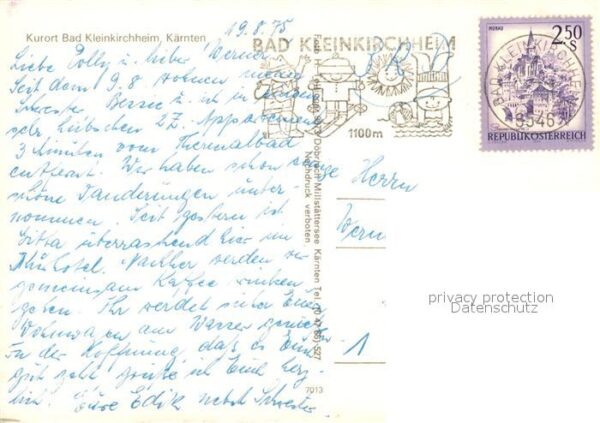 Kurort Bad Kleinkirchheim, Kärnten
19.8.75
Liebe Polly u. lieber Werner,
Seit dem 9.8. wohnen meine
Schwester u. ich in einem
sehr hübschen 2Z. Appartement
3 Minuten vom Thermalbad
entfernt. Wir haben schon einige
schöne Wanderungen unter-
nommen. Seit gestern ist
Gitta überraschend hier im
Nachher werden wir
gemeinsam Kaffee trinken
gehen. Ihr werdet sicher Euren
Wohnwagen am Wasser genießen
In der Hoffnung, daß es Euch
gut geht grüße ich Euch herz-
lich. Eure Edik nebst Schwester
BAD KLEINKIRCHHEIM
1100m
2.50
S
REPUBLIK ÖSTERREICH
BAD KLEINKIRCHHEIM
9546
Herrn
Wern
1
Döbriach Millstättersee Kärnten Tel. (0 42 46)-527
Nachdruck verboten
7013
privacy protection
Datenschutz